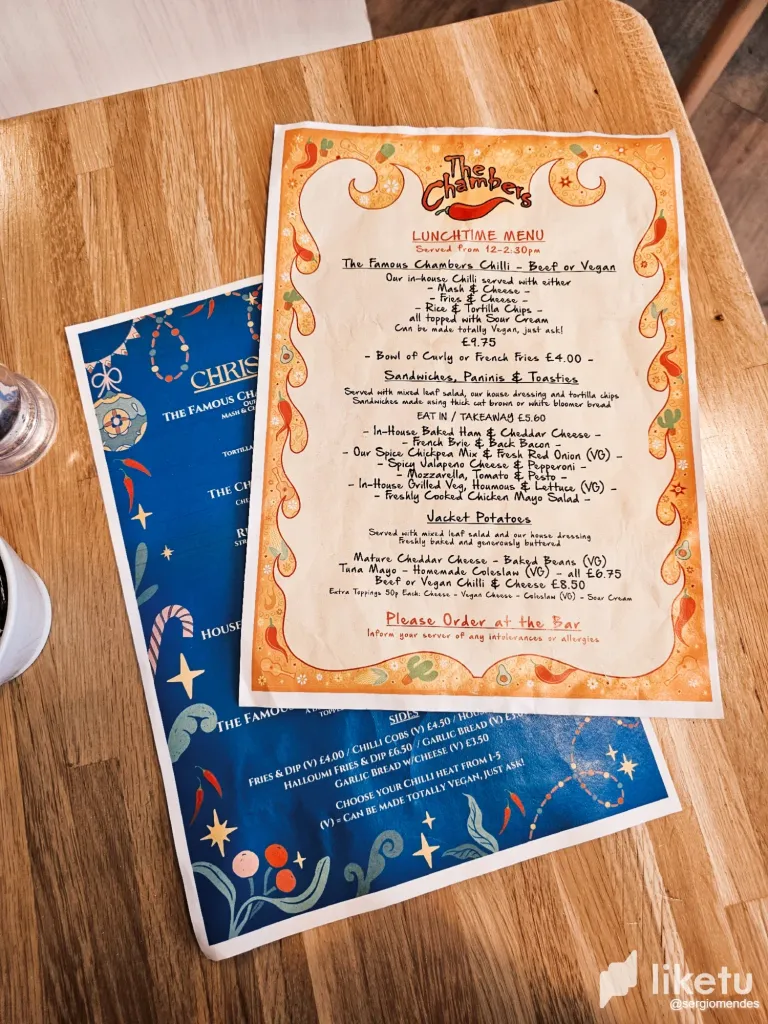 The
Chambers
LUNCHTIME MENU
Served from 12-2:30pm
The Famous Chambers Chilli - Beef or Vegan
Our in-house Chilli served with either
- Mash & Cheese -
- Fries & Cheese -
- Rice & Tortilla Chips -
all topped with Sour Cream
Can be made totally Vegan, just ask!
£9.75
- Bowl of Curly or French Fries £4.00 -
Sandwiches, Paninis & Toasties
Served with mixed leaf salad, our house dressing and tortilla chips
Sandwiches made using thick cut brown or white bloomer bread
EAT IN / TAKEAWAY £5.60
- In-House Baked Ham & Cheddar Cheese -
- French Brie & Back Bacon -
- Our Spice Chickpea Mix & Fresh Red Onion (VG) -
- Spicy Jalapeno Cheese & Pepperoni -
- Mozzarella, Tomato & Pesto -
- In-House Grilled Veg, Houmous & Lettuce (VG) -
- Freshly Cooked Chicken Mayo Salad -
Jacket Potatoes
Served with mixed leaf salad and our house dressing
Freshly baked and generously buttered
Mature Cheddar Cheese - Baked Beans (VG)
Tuna Mayo - Homemade Coleslaw (VG) - all £6.75
Beef or Vegan Chilli & Cheese £8.50
Extra Toppings 50p Each: Cheese - Vegan Cheese - Coleslaw (VG) - Sour Cream
Please Order at the Bar
Inform your server of any intolerances or allergies
CHRIS
THE FAMOUS CHA
OU
MASH & C
TORTILLA
THE CH
CHE
STR
HOUSE
THE FAMOU
TOPPE
SIDES
FRIES & DIP (V) £4.00 / CHILLI COBS (V) £4.50 / HOUS
HALLOUMI FRIES & DIP £6.50 / GARLIC BREAD (V)
GARLIC BREAD W/CHEESE (V) £3.50
CHOOSE YOUR CHILLI HEAT FROM 1-5
(V) = CAN BE MADE TOTALLY VEGAN, JUST ASK!
liketu
@sergiomendes